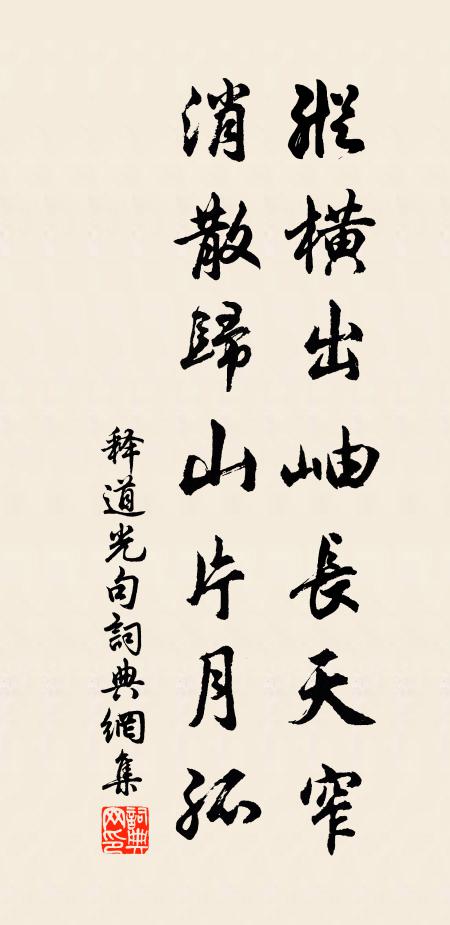 縱橫出岫長天窄
消散歸山片月孤
释道光句詞典網集
詞典网印